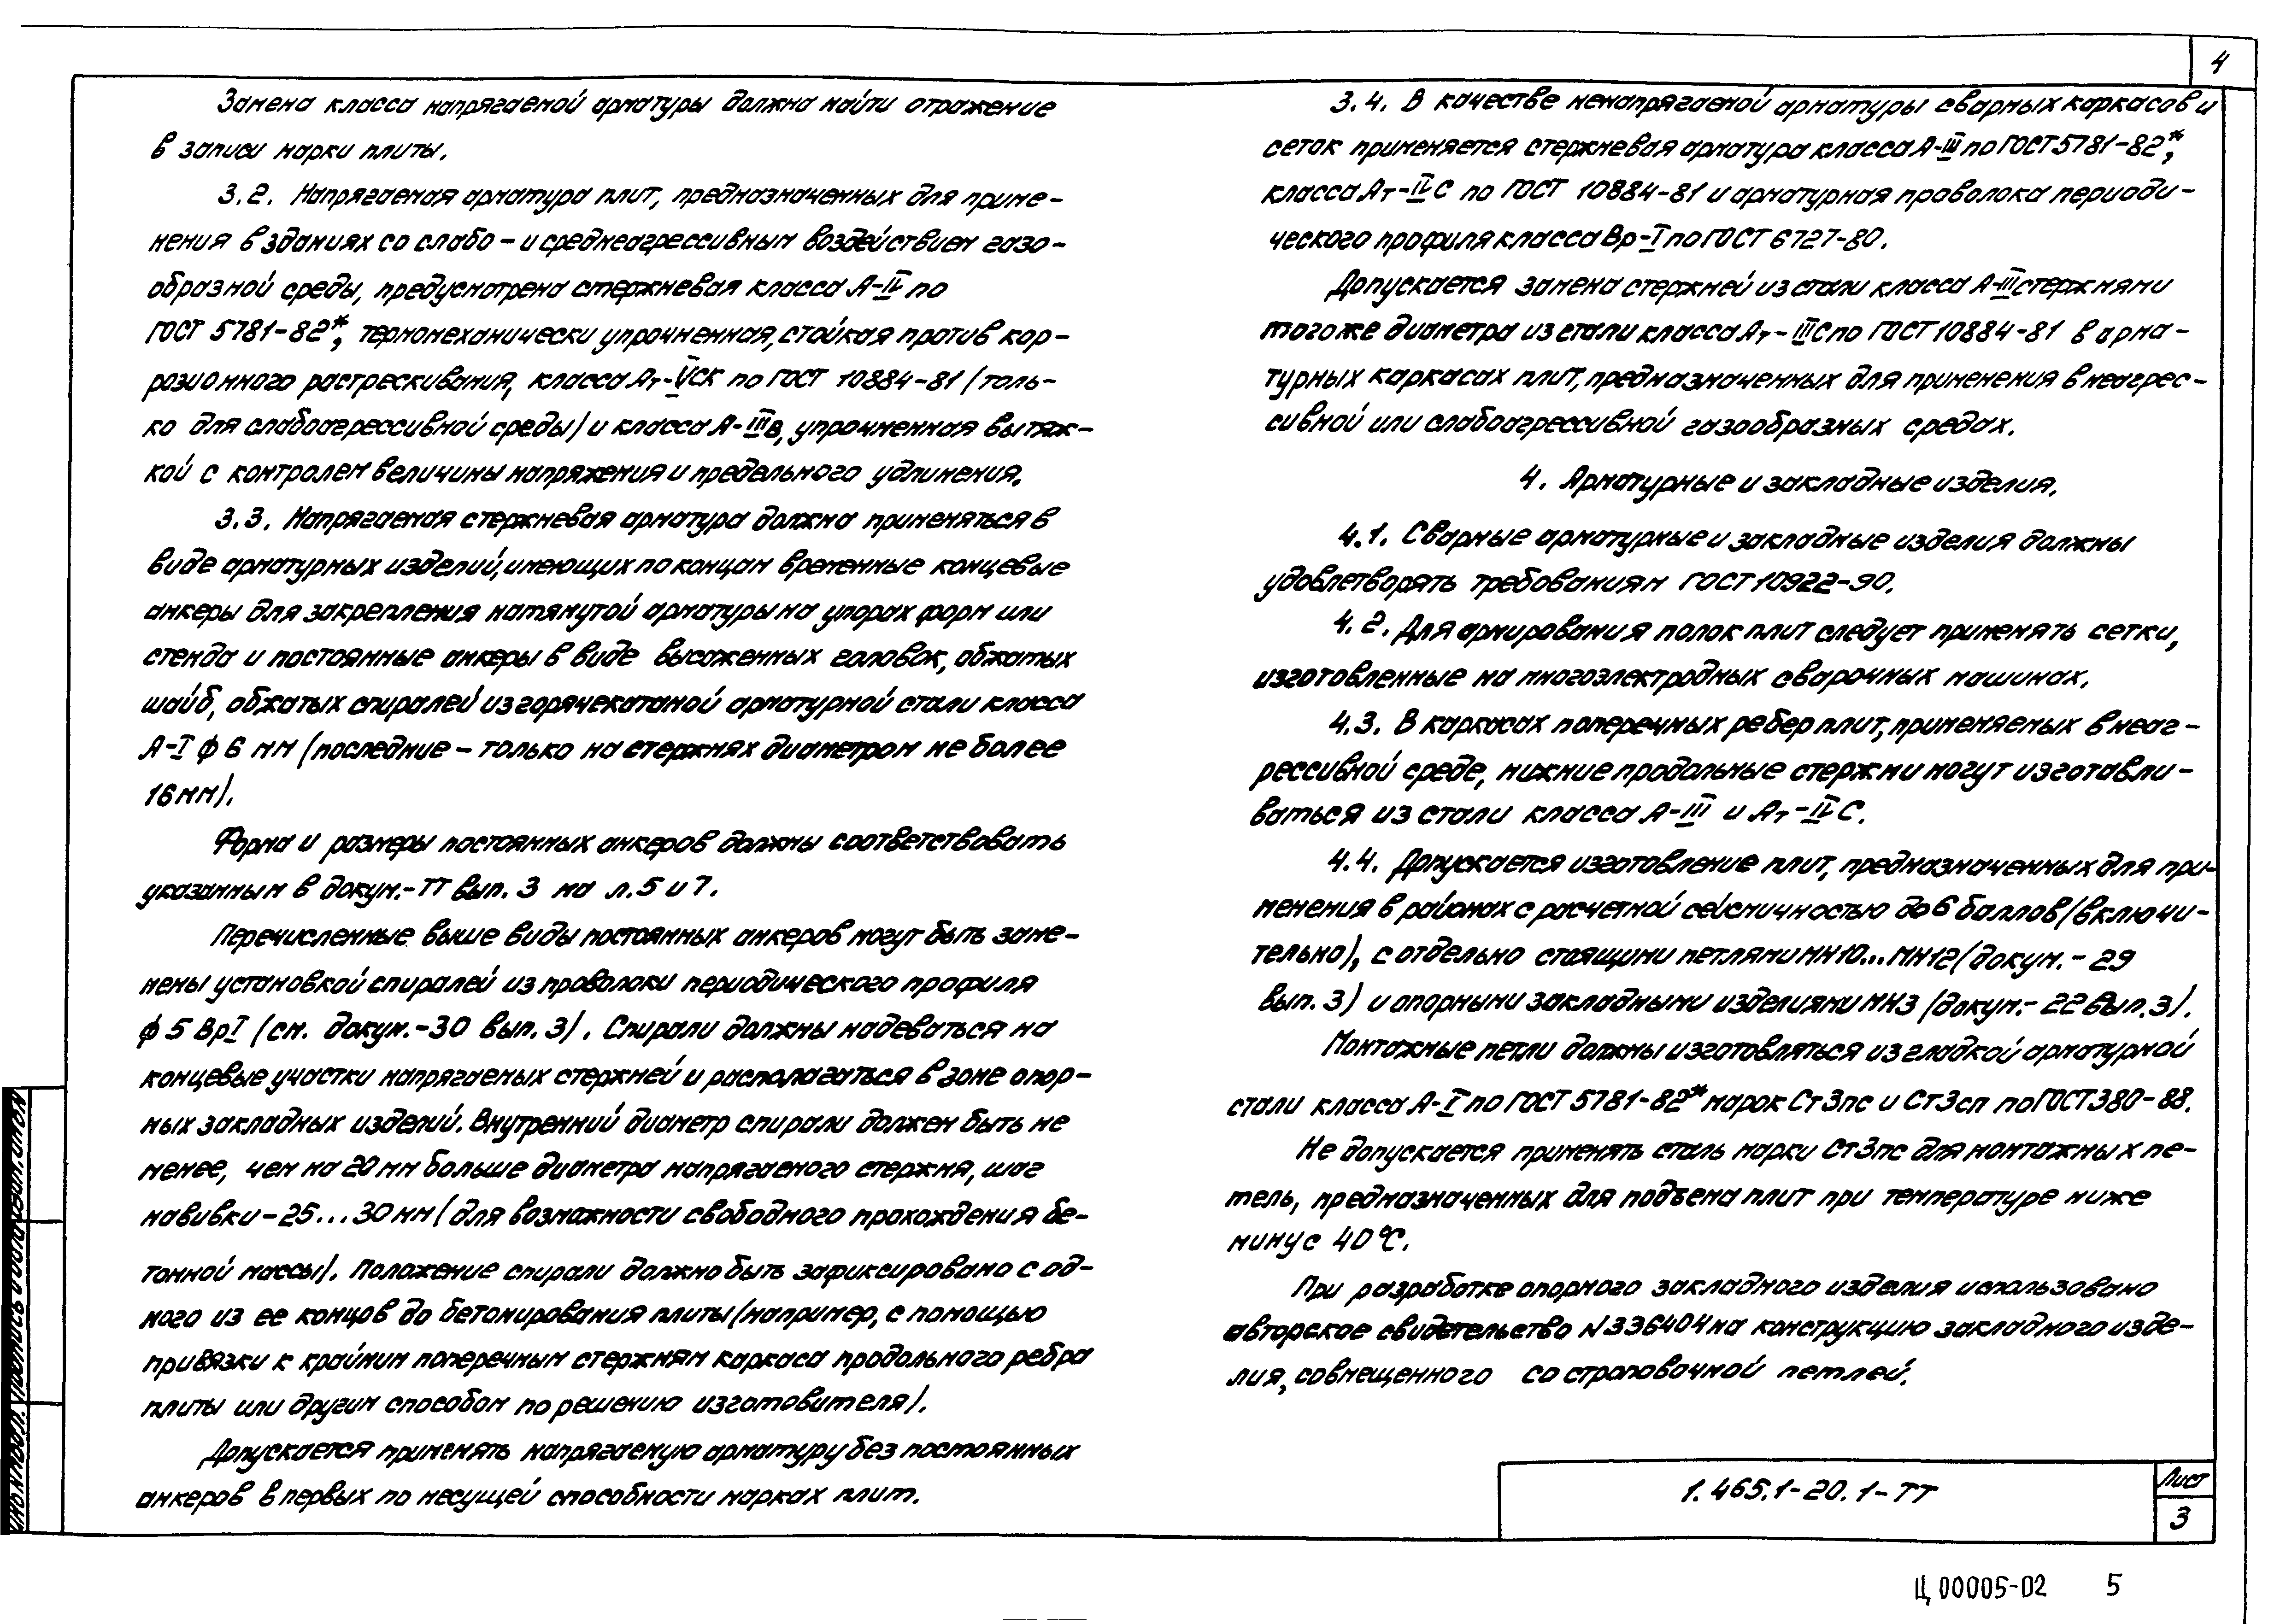 4
Замена класса напрягаемой арматуры должна найти отражение
в записи марки плиты.
3.2. Напрягаемая арматура плит, предназначенных для приме-
нения в зданиях со слабо- и среднеагрессивным воздействием газо-
образной среды, предусмотрена стержневая класса А-IV по
ГОСТ 5781-82*, термомеханически упрочненная, стойкая против кор-
розионного растрескивания, класса Ат-VСК по ГОСТ 10884-81 (толь-
ко для слабоагрессивной среды) и класса А-IIIв, упрочненная вытяж-
кой с контролем величины напряжения и предельного удлинения.
3.3. Напрягаемая стержневая арматура должна применяться в
виде арматурных изделий, имеющих по концам временные концевые
анкеры для закрепления натянутой арматуры на упорах форм или
стенда и постоянные анкеры в виде высаженных головок, обжатых
шайб, обжатых спиралей из горячекатаной арматурной стали класса
А-I ф 6 мм (последние - только на стержнях диаметром не более
16 мм).
Форма и размеры постоянных анкеров должны соответствовать
указанным в докум.-ТТ вып. 3 на л. 5 и 7.
Перечисленные выше виды постоянных анкеров могут быть заме-
нены установкой спиралей из проволоки периодического профиля
ф 5 ВрI (см. докум.-30 вып. 3). Спирали должны надеваться на
концевые участки напрягаемых стержней и располагаться в зоне опор-
ных закладных изделий. Внутренний диаметр спирали должен быть не
менее, чем на 20 мм больше диаметра напрягаемого стержня, шаг
навивки - 25...30 мм (для возможности свободного прохождения бе-
тонной массы). Положение спирали должно быть зафиксировано с од-
ного из ее концов до бетонирования плиты (например, с помощью
привязки к крайним поперечным стержням каркаса продольного ребра
плиты или другим способом по решению изготовителя).
Допускается применять напрягаемую арматуру без постоянных
анкеров в первых по несущей способности марках плит.
3.4. В качестве ненапрягаемой арматуры сварных каркасов и
сеток применяется стержневая арматура класса А-III по ГОСТ 5781-82*,
класса Ат-IVС по ГОСТ 10884-81 и арматурная проволока периоди-
ческого профиля класса Вр-I по ГОСТ 6727-80.
Допускается замена стержней из стали класса А-III стержнями
того же диаметра из стали класса Ат-IIIС по ГОСТ 10884-81 в арма-
турных каркасах плит, предназначенных для применения в неагрес-
сивной или слабоагрессивной газообразных средах.
4. Арматурные и закладные изделия.
4.1. Сварные арматурные и закладные изделия должны
удовлетворять требованиям ГОСТ 10922-90.
4.2. Для армирования полок плит следует применять сетки,
изготовленные на многоэлектродных сварочных машинах.
4.3. В каркасах поперечных ребер плит, применяемых в неаг-
рессивной среде, нижние продольные стержни могут изготавли-
ваться из стали класса А-III и Ат-IVС.
4.4. Допускается изготовление плит, предназначенных для при-
менения в районах с расчетной сейсмичностью до 6 баллов (включи-
тельно), с отдельно стоящими петлями МН10...МН12 (докум.-29
вып. 3) и опорными закладными изделиями МН3 (докум.-22 вып. 3).
Монтажные петли должны изготовляться из гладкой арматурной
стали класса А-I по ГОСТ 5781-82* марок Ст3пс и Ст3сп по ГОСТ 380-88.
Не допускается применять сталь марки Ст3пс для монтажных пе-
тель, предназначенных для подъема плит при температуре ниже
минус 40°С.
При разработке опорного закладного изделия использовано
авторское свидетельство N 336404 на конструкцию закладного изде-
лия, совмещенного со строповочной петлей.
1.465.1-20.1-ТТ
Лист
3
Ц 00005-02 5